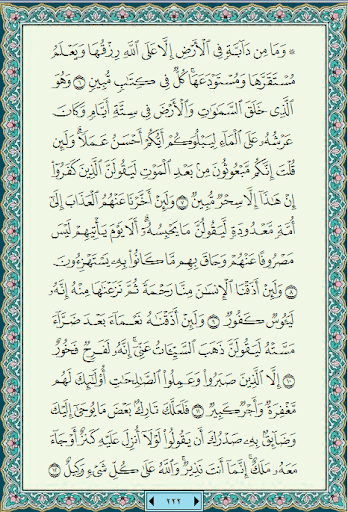 ۞ وَمَا مِن دَآبَّةٍ فِى ٱلْأَرْضِ إِلَّا عَلَى ٱللَّهِ رِزْقُهَا وَيَعْلَمُ
مُسْتَقَرَّهَا وَمُسْتَوْدَعَهَا ۚ كُلٌّ فِى كِتَٰبٍ مُّبِينٍ ۝٦ وَهُوَ
ٱلَّذِى خَلَقَ ٱلسَّمَٰوَٰتِ وَٱلْأَرْضَ فِى سِتَّةِ أَيَّامٍ وَكَانَ
عَرْشُهُۥ عَلَى ٱلْمَآءِ لِيَبْلُوَكُمْ أَيُّكُمْ أَحْسَنُ عَمَلًا ۗ وَلَئِن
قُلْتَ إِنَّكُم مَّبْعُوثُونَ مِنۢ بَعْدِ ٱلْمَوْتِ لَيَقُولَنَّ ٱلَّذِينَ كَفَرُوٓا۟
إِنْ هَٰذَآ إِلَّا سِحْرٌ مُّبِينٌ ۝٧ وَلَئِنْ أَخَّرْنَا عَنْهُمُ ٱلْعَذَابَ إِلَىٰٓ
أُمَّةٍ مَّعْدُودَةٍ لَّيَقُولُنَّ مَا يَحْبِسُهُۥٓ ۗ أَلَا يَوْمَ يَأْتِيهِمْ لَيْسَ
مَصْرُوفًا عَنْهُمْ وَحَاقَ بِهِم مَّا كَانُوا۟ بِهِۦ يَسْتَهْزِءُونَ
۝٨ وَلَئِنْ أَذَقْنَا ٱلْإِنسَٰنَ مِنَّا رَحْمَةً ثُمَّ نَزَعْنَٰهَا مِنْهُ إِنَّهُۥ
لَيَـُٔوسٌ كَفُورٌ ۝٩ وَلَئِنْ أَذَقْنَٰهُ نَعْمَآءَ بَعْدَ ضَرَّآءَ
مَسَّتْهُ لَيَقُولَنَّ ذَهَبَ ٱلسَّيِّـَٔاتُ عَنِّىٓ ۚ إِنَّهُۥ لَفَرِحٌ فَخُورٌ
۝١٠ إِلَّا ٱلَّذِينَ صَبَرُوا۟ وَعَمِلُوا۟ ٱلصَّٰلِحَٰتِ أُو۟لَٰٓئِكَ لَهُم
مَّغْفِرَةٌ وَأَجْرٌ كَبِيرٌ ۝١١ فَلَعَلَّكَ تَارِكٌۢ بَعْضَ مَا يُوحَىٰٓ إِلَيْكَ
وَضَآئِقٌۢ بِهِۦ صَدْرُكَ أَن يَقُولُوا۟ لَوْلَآ أُنزِلَ عَلَيْهِ كَنزٌ أَوْ جَآءَ
مَعَهُۥ مَلَكٌ ۚ إِنَّمَآ أَنتَ نَذِيرٌ ۚ وَٱللَّهُ عَلَىٰ كُلِّ شَىْءٍ وَكِيلٌ ۝١٢
٢٢٢